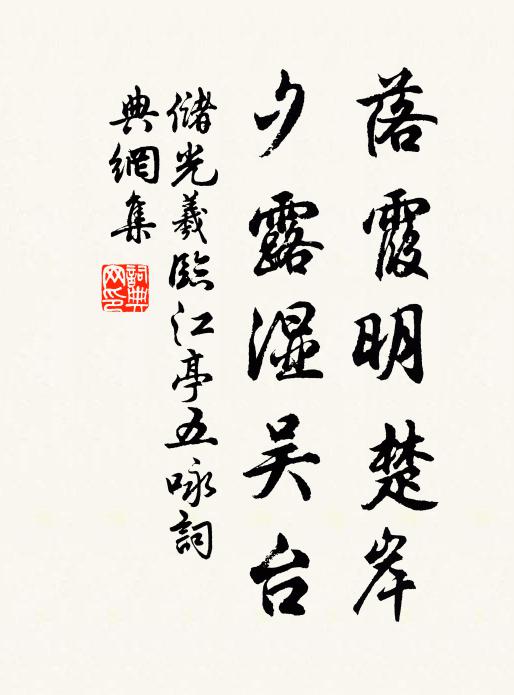 落霞明楚岸
夕露湿吴台
儲光羲臨江亭五咏詞
典網集
詞典网印